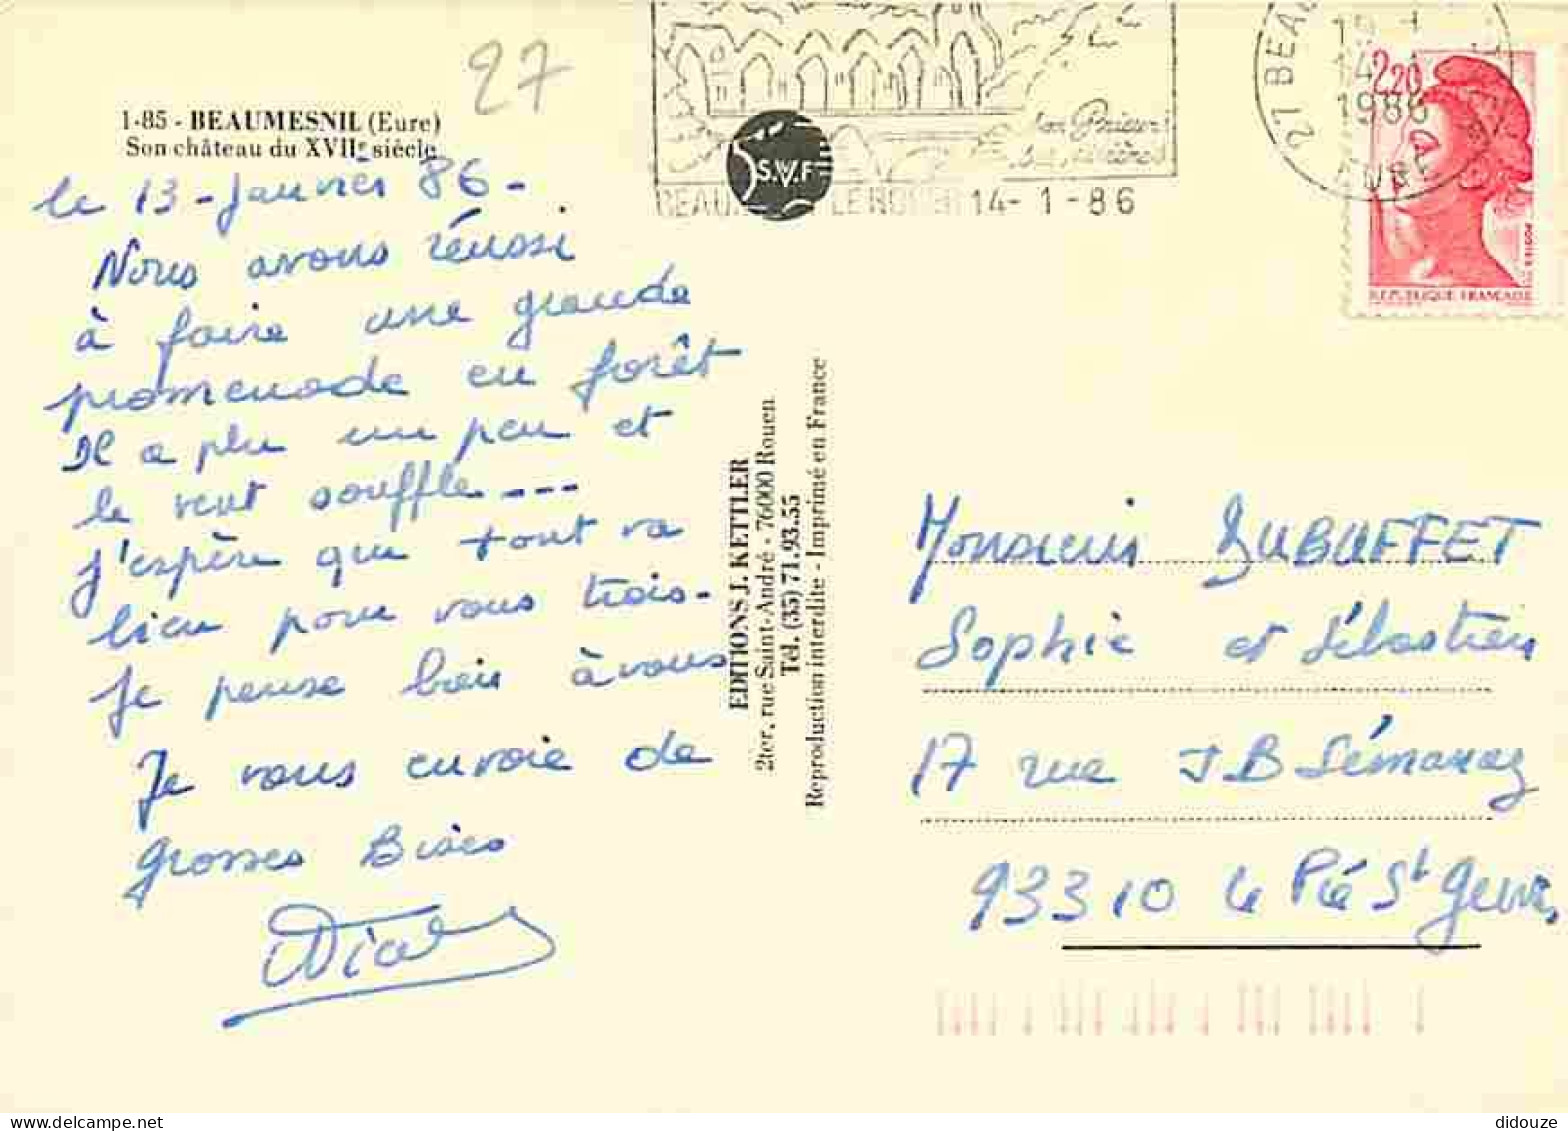 27
1-85 - BEAUMESNIL (Eure)
Son château du XVIIe siècle
le 13 - Janvier 86 -
Nous avons réussi
à faire une grande
promenade en forêt
Il a plu un peu et
le vent souffle - - -
j'espère que tout va
bien pour vous trois -
Je pense bien à vous
Je vous envoie de
grosses Bises
EDITIONS J. KETTLER
2ter, rue Saint-André - 76000 Rouen
Tél. (35) 71.93.55
Reproduction interdite - Imprimé en France
S.V.F
14-1-86
27 BEAU
14
1986
EURE
2,20
REPUBLIQUE FRANÇAISE
Monsieur DUBUFFET
Sophie et Sébastien
17 rue J B Sémanaz
93310 Le Pré St Gervais
didouze